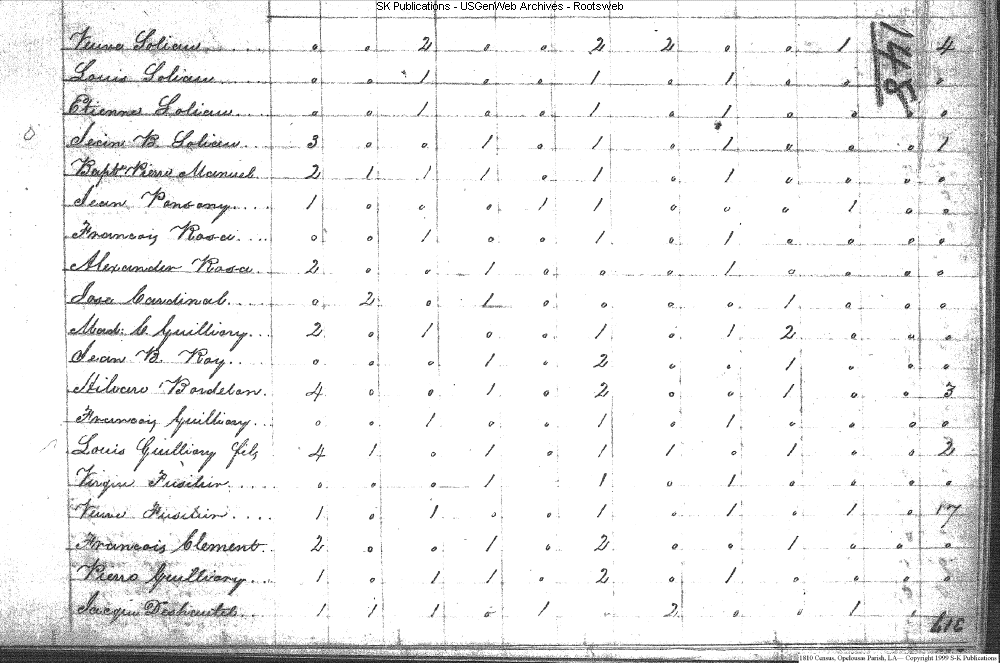 SK Publications - USGenWeb Archives - Rootsweb
148
Veuve Soliau..... 0 0 2 0 0 2 2 0 0 1 0 4
Louis Soliau..... 0 0 1 0 0 1 0 1 0 0 0
Etienne Soliau... 0 0 1 0 0 1 0 1 0 0 0 0
Jean B. Soliau.... 3 0 0 1 0 1 0 1 0 0 0 1
Bapte Pierre Manuel. 2 1 1 1 0 1 0 1 0 0 0 0
Jean 1 0 0 0 1 1 0 0 0 1 0 0
Francois Rosa.... 0 0 1 0 0 1 0 1 0 0 0 0
Alexander Rosa. 2 0 0 1 0 0 0 1 0 0 0 0
Jose Cardinal... 0 2 0 1 0 0 0 0 1 0 0 0
Mad: C. Guilliory... 2 0 1 0 0 1 0 1 2 0 0 0
Jean B. Roy.... 0 0 0 1 0 2 0 0 1 0 0 0
Hilaire Bordelon. 4 0 0 1 0 2 0 0 1 0 0 3
Francois Guilliory... 0 0 1 0 0 1 0 1 0 0 0 0
Louis Guilliory fils 4 1 0 1 0 1 1 0 1 0 0 2
Fusilier..... 0 0 0 1 1 0 1 0 0 0 0
Veuve Fusilier.... 1 0 1 0 0 1 0 1 0 1 0 17
Francois Clement.. 2 0 0 1 0 2 0 0 1 0 0 0
Pierre Guilliory... 1 0 1 1 0 2 0 1 0 0 0 0
1 1 1 0 1 2 0 0 1
1810 Census, Opelousas Parish, LA -- Copyright 1999 S-K Publications